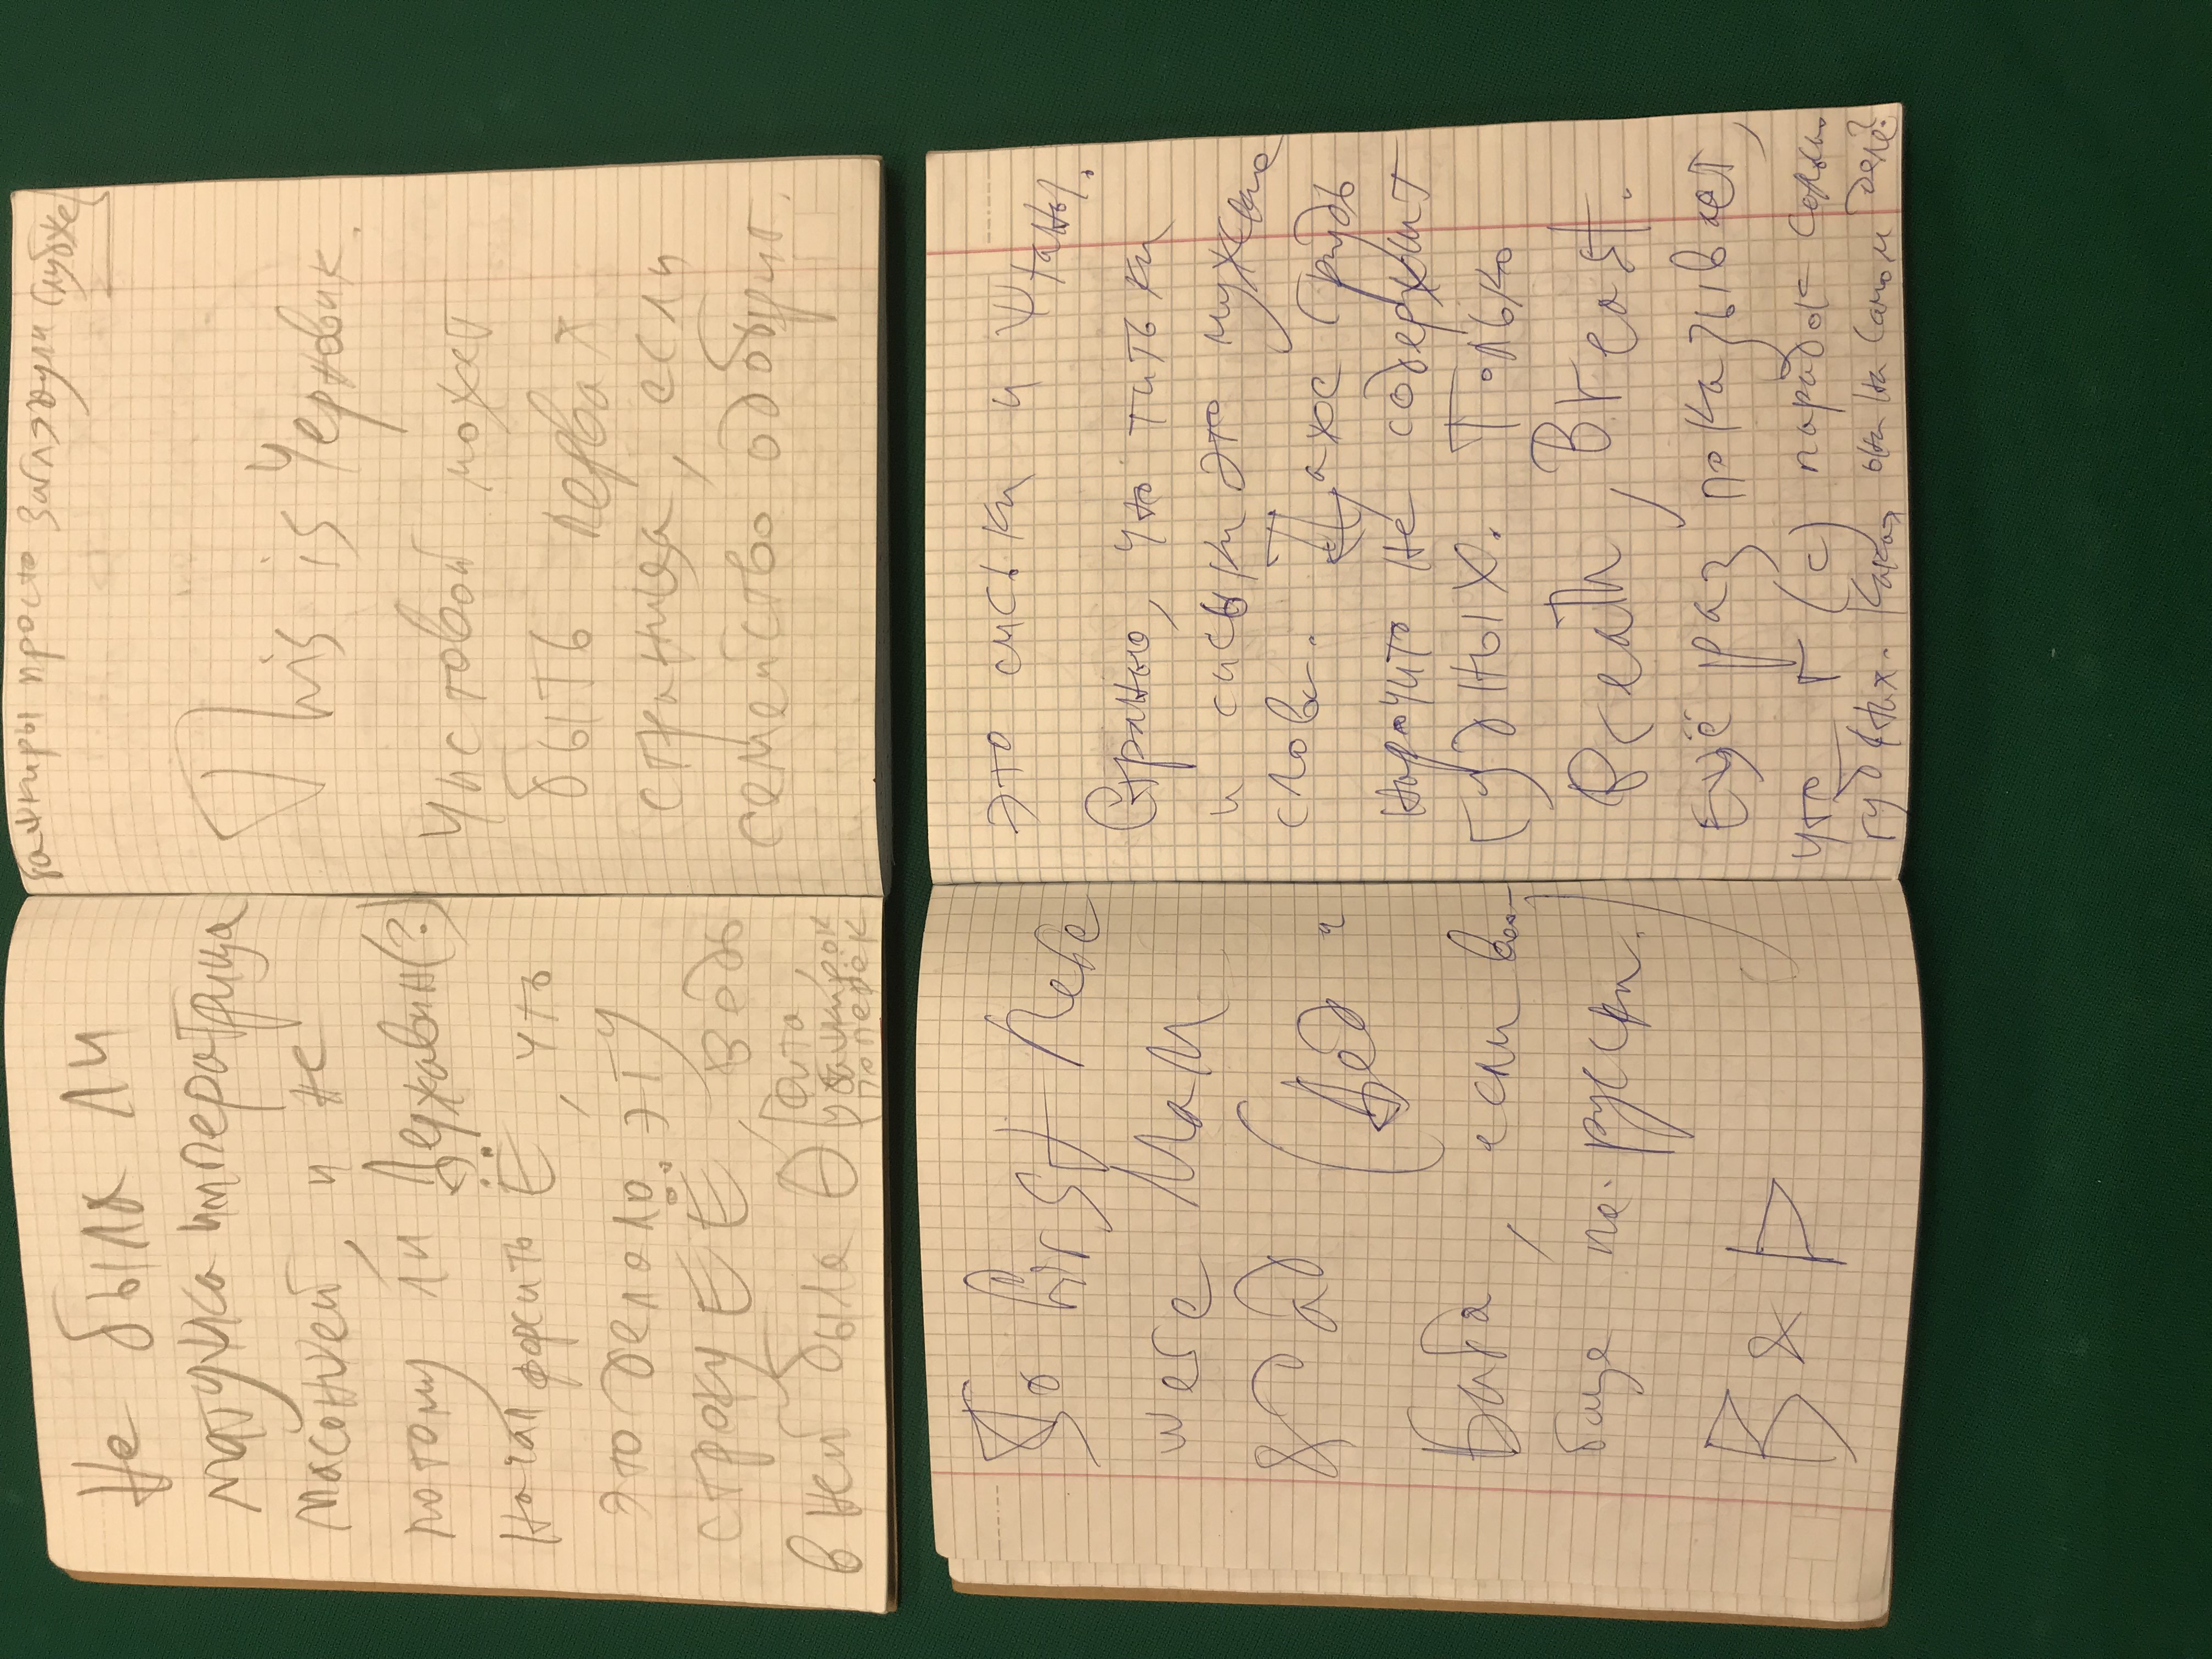 Не была ли
матушка императрица
масонкей, и не
потому ли Державин(?)
начал форсить Ё, что
это делало эту
строку ЕЁ, ведь
в ней была Ѳ (Фита,
у башкирок
поперёк
башкиры просто заглянули глубже)
This is Черновик.
Чистовой может
быть первая
страница, если
семейство одобрит.
So first here
were Mam
& Dad (Дед и
Баба, если воо-
бще по-русски.)
B & Þ
это сиськи и Ψтаны.
Странно, что титьки
и сиськи это мужские
слова. Даже грудь
нарочито не содержит
губных. Только
Breath, Breast.
Ещё раз показывает,
что г (с) парадок
губных. Какая она на самом деле?